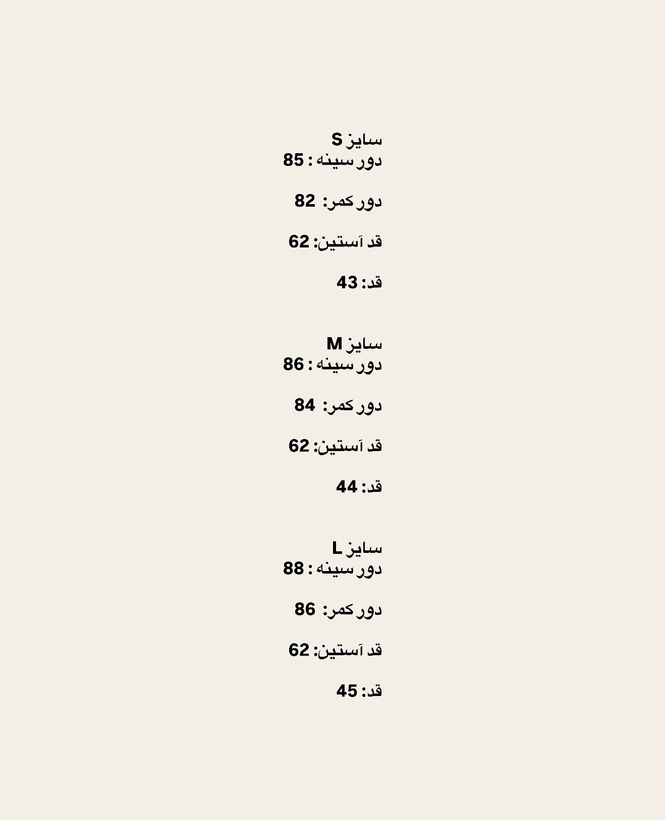 سایز S
دور سینه : 85
دور کمر: 82
قد آستین: 62
قد: 43
سایز M
دور سینه : 86
دور کمر: 84
قد آستین: 62
قد: 44
سایز L
دور سینه : 88
دور کمر: 86
قد آستین: 62
قد: 45